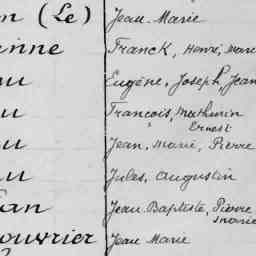 n (Le) Jean Marie
anne Franck, Henri, Marie
au Eugène, Joseph, Jean
u Francois, Mathurin
Ernest
u Jean, Marie, Pierre
u Jules, Augustin
an Jean Baptiste, Pierre
Marie
ouvrier Jean Marie